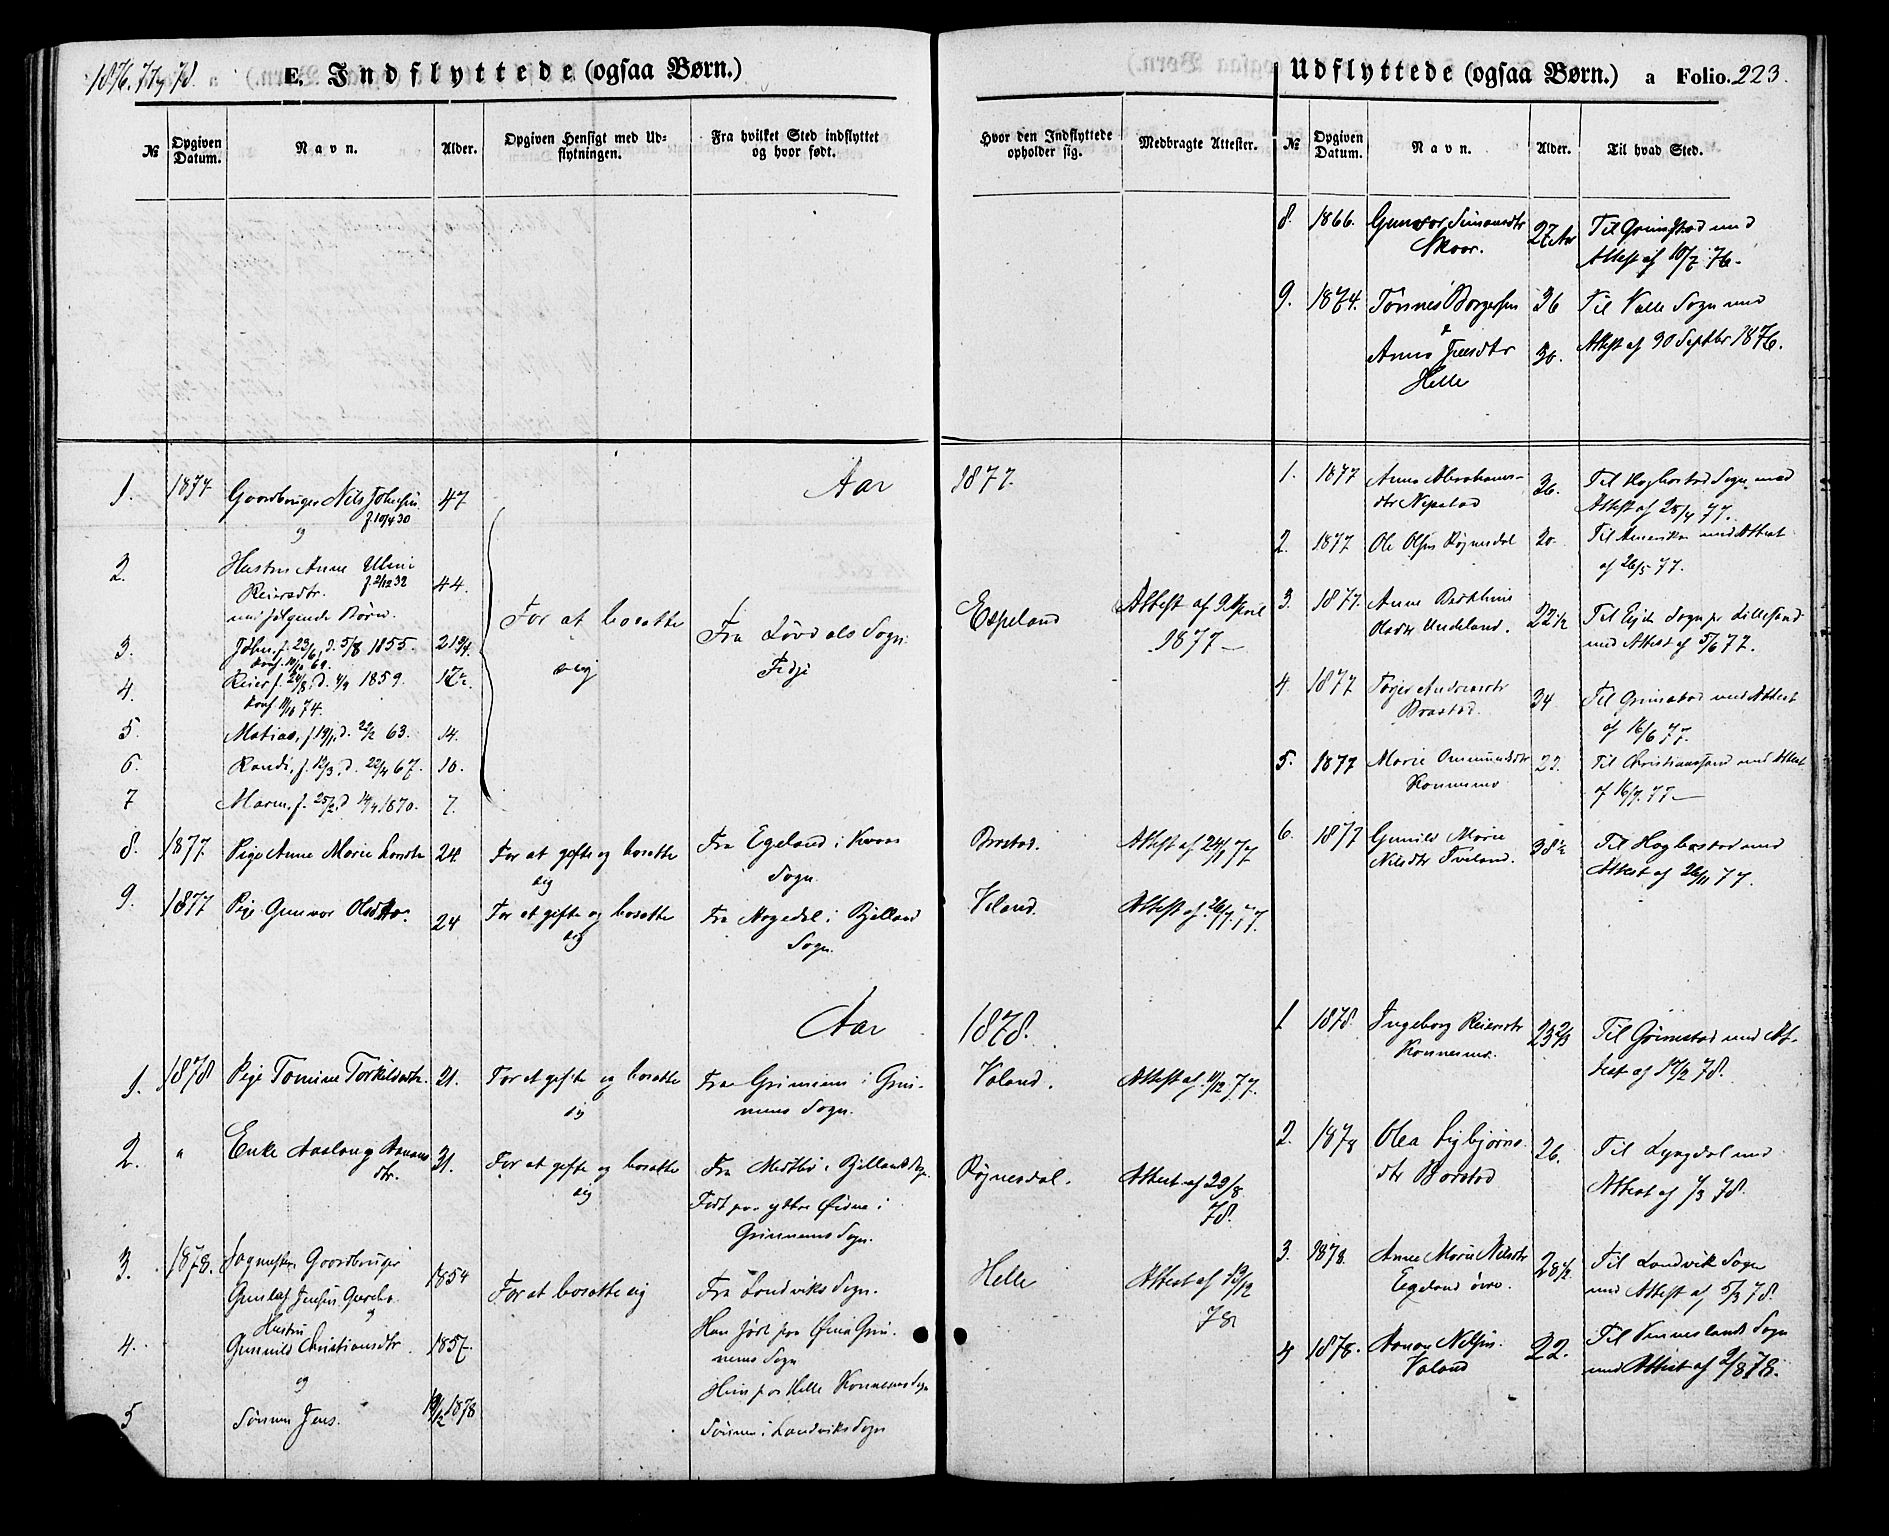 1876. 77 og 78.
E. Indflyttede (ogsaa Børn.)
№
Opgiven Datum.
Navn.
Alder.
Opgiven Hensigt med Udflytningen.
Fra hvilket Sted indflyttet og hvor født.
Aar
1. 1874 Gaardbruger Nils Johnsen 47
f. 10/4 30
og
2. Hustru Anne
f. 2/12 32
Reiersdtr. 44.
med følgende Børn.
3. John f. 23/6, d. 5/8 1855. 21 3/4.
Konf. 69.
4. Reier f. 24/8, d. 4/9 1859.
Konf. 74.
5. Matias, f. d. 22/2 63. 14.
6. Randi, f. 12/3, d. 22/4 67. 10.
7 Maren, f. 25/2, d 14/4 1870. 7.
For at bosætte
sig
Fra Lövdals Sogn.
Fedje
8. 1877. Pige Anne Marie 24. For at gifte og bosætte Fra Egeland i Kvaas
sig Sogn.
9. 1877 Pige Gunvor Olsdtr. 24 For at gifte og bosætte Fra i Bjelland
sig Sogn.
Aar
1. 1878 Pige Tomine Torkildsdtr. 21. For at gifte og bosætte Fra Grimem i Grin-
sig mens Sogn.
2. " Enke Aaslaug Aanons 31. For at gifte og bosætte Fra i Bjellands Sogn.
dtr. sig
Født paa yttre Øidne i
Grinmens Sogn.
3. 1878. Gaardbruger
Gunlef Jensen 1854 For at bosætte sig Fra Landviks Sogn.
og
Hustru
Han født paa Øina Grin-
4. Gunvild Christiansdtr 1857. mens Sogn
og
Hun paa Helle Konnesmo Sogn
5 Sönnen Jens. 1878 Sönnen i Landviks Sogn
Udflyttede (ogsaa Børn.) a Folio. 223.
Hvor den Indflyttede opholder sig.
Medbragte Attester.
№
Opgiven Datum.
Navn.
Alder.
Til hvad Sted.
8. 1866. Gunvor Simonsdtr 27 Aar Til Grimstad med
Skoor. Attest af 10/7 76.
9. 1874. Tønnes Borgersen 36 Til Valle Sogn med
&
Anne 30. Attest af 30 Septbr 1876.
Helle
1877.
Espeland
Attest af 9 April
1877 —
Attest af 77
Voland.
Attest af 26/7. 77.
1. 1877 Anne Abrahams- 36. Til Hægbostad Sogn med
dtr Nepstad Attest af 28/4 77.
2. 1877 Ole Olsen Røinesdal 20 Til Amerika med Attest
af 26/5 77.
3. 1877. Anne Berthine 22 1/2 Til Sogn pr Lillesand
Olsdtr Undeland. med Attest af 5/6 77.
4. 1877 Andreasdtr 34 Til Grimstad med Attest
af 16/6 77.
5. 1877 Marie Omundsdtr 22. Til Christianssand med Attest
Konnesmo af 16/7. 77 —
6. 1877 Gunild Marie 38 1/2 Til Hægbostad med
Nilsdtr Tveiland. Attest af 26/11 77.
1878.
Voland.
Attest af 11/12 77.
Røinesdal.
Attest af 29/8
78.
Helle
Attest af 13/12
78
1 1878. Ingeborg Reiersdtr 23 2/3 Til Grimstad med At-
Konnesmo. test af 12/2 78.
2. 1878 Olea Sigbjørns- 26. Til Lyngdal med
dtr Bordstad Attest af 1/3 78.
3. 1878. Anne Marie Nilsdtr 28 1/2 Til Landvik Sogn
Egeland övre. med Attest af 5/3 78.
4 1878. Aanon Nilsen 22. Til Venneslands Sogn
Voland med Attest af 2/8 78.